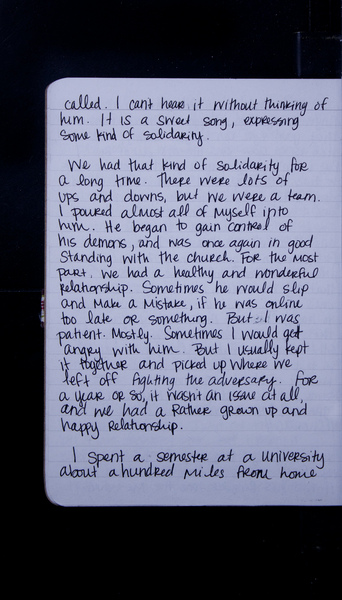 called. I cant hear it without thinking of
him. It is a sweet song, expressing
some kind of solidarity.
We had that kind of solidarity for
a long time. There were lots of
ups and downs, but we were a team.
I poured almost all of myself into
him. He began to gain control of
his demons, and was once again in good
standing with the church. For the most
part, we had a healthy and wonderful
relationship. Sometimes he would slip
and make a mistake, if he was online
too late or something. But I was
patient. Mostly. Sometimes I would get
angry with him. But I usually kept
it together and picked up where we
left off fighting the adversary. For
a year or so, it wasn't an issue at all,
and we had a rather grown up and
happy relationship.
I spent a semester at a university
about a hundred miles from home